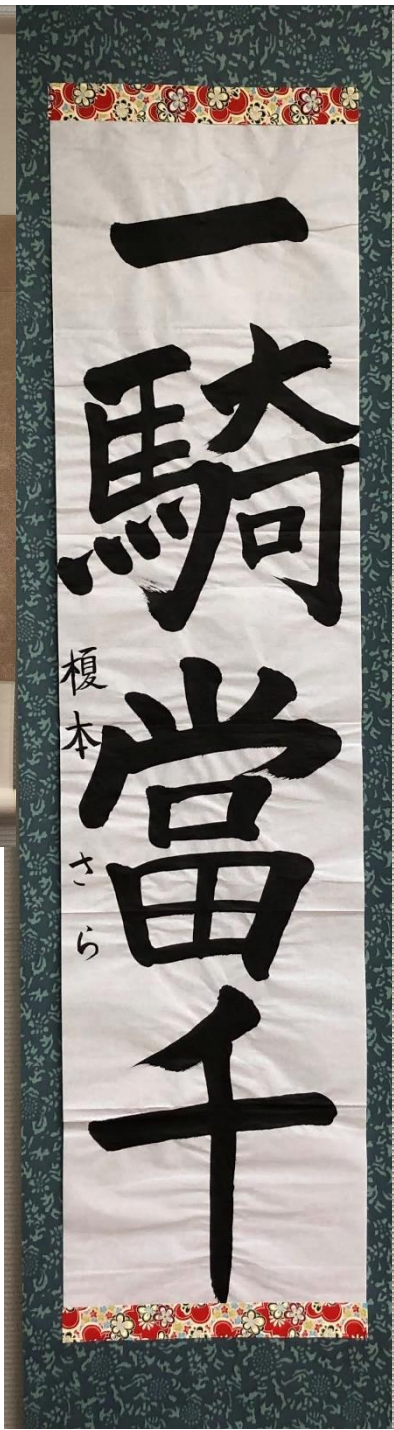 一騎當千
榎本さら